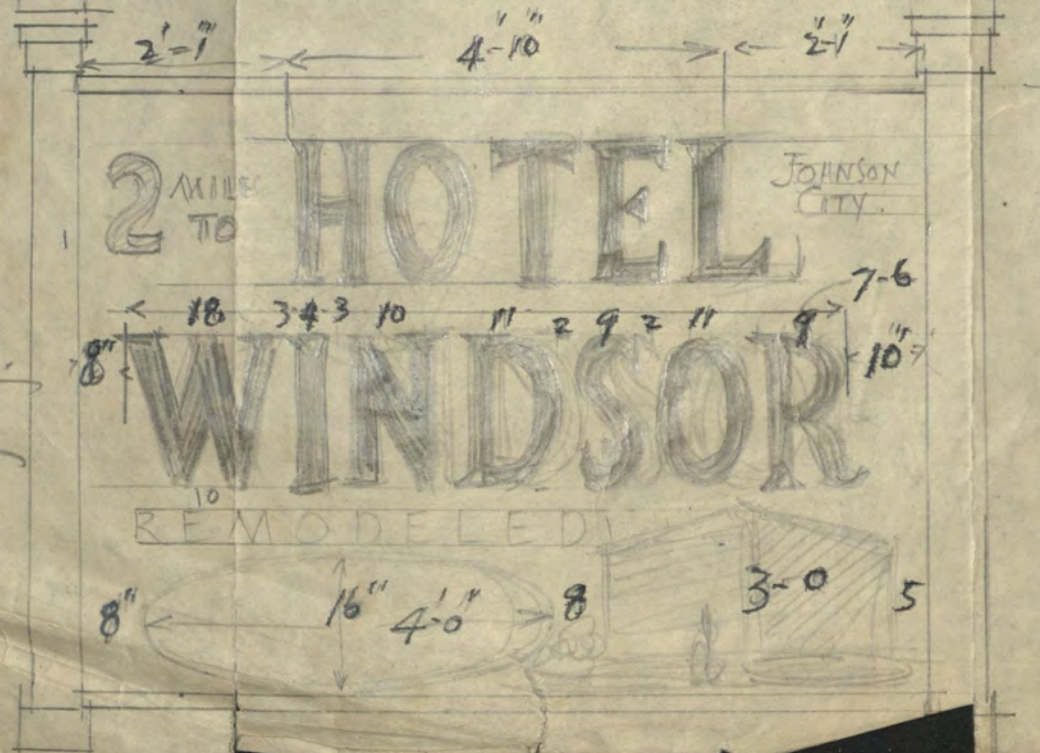 2'-1" 4'-10" 2'-1"
2 MILES TO HOTEL JOHNSON CITY.
7-6
18 3-4-3 10 11 2 9 2 11 9
8" WINDSOR 10"
10
REMODELED
8" 16" 4'-0" 8 3-0 5